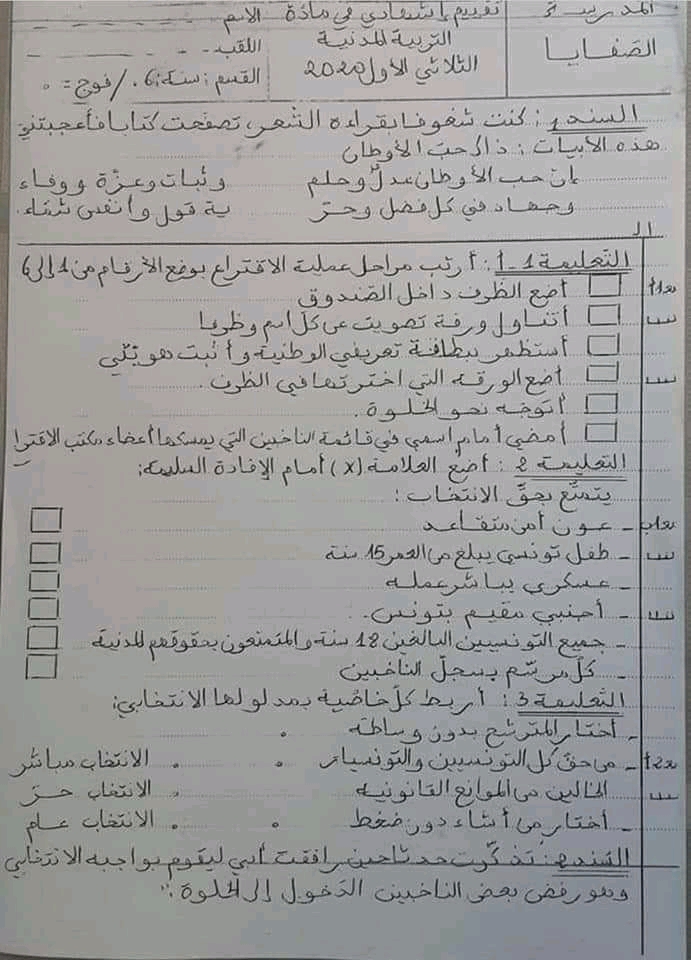 المدرسة
تقييم إشهادي في مادة
الاسم
الصفايا
التربية المدنية
اللقب
الثلاثي الأول 2020
القسم: سنة: 6 / فوج =
السند 1: كنت شغوفا بقراءة الشعر، تصفحت كتابا فأعجبتني
هذه الأبيات: ذاك حب الأوطان
إن حب الأوطان عدل وحلم وثبات وعزة ووفاء
وجهاد في كل فضل وحر ية قول وأنفس شماء.
التعليمة 1-أ: أرتب مراحل عملية الاقتراع بوضع الأرقام من 1 إلى 6
مع1أ
أضع الظرف داخل الصندوق
أتناول ورقة تصويت عن كل اسم وظرفا
أستظهر ببطاقة تعريفي الوطنية وأثبت هويتي
أضع الورقة التي اخترتها في الظرف.
أتوجه نحو الخلوة.
أمضي أمام اسمي في قائمة الناخبين التي يمسكها أعضاء مكتب الاقترا
التعليمة 2: أضع العلامة (x) أمام الإفادة السليمة:
يتمتع بحق الانتخاب:
مع1ب
- عون أمن متقاعد
- طفل تونسي يبلغ من العمر 15 سنة
- عسكري يباشر عمله
- أجنبي مقيم بتونس.
- جميع التونسيين البالغين 18 سنة والمتمتعون بحقوقهم المدنية
- كل مرسم بسجل الناخبين
التعليمة 3: أربط كل خاصية بمدلولها الانتخابي:
- أختار المترشح بدون وساطة
مع2أ
- من حق كل التونسيين والتونسيات الانتخاب مباشر
الخالين من الموانع القانونية الانتخاب حر
- أختار من أشاء دون ضغط الانتخاب عام
السند: تذكرت حدثا حين رافقت أبي ليقوم بواجبه الانتخابي
وهو رفض بعض الناخبين الدخول إلى الخلوة."